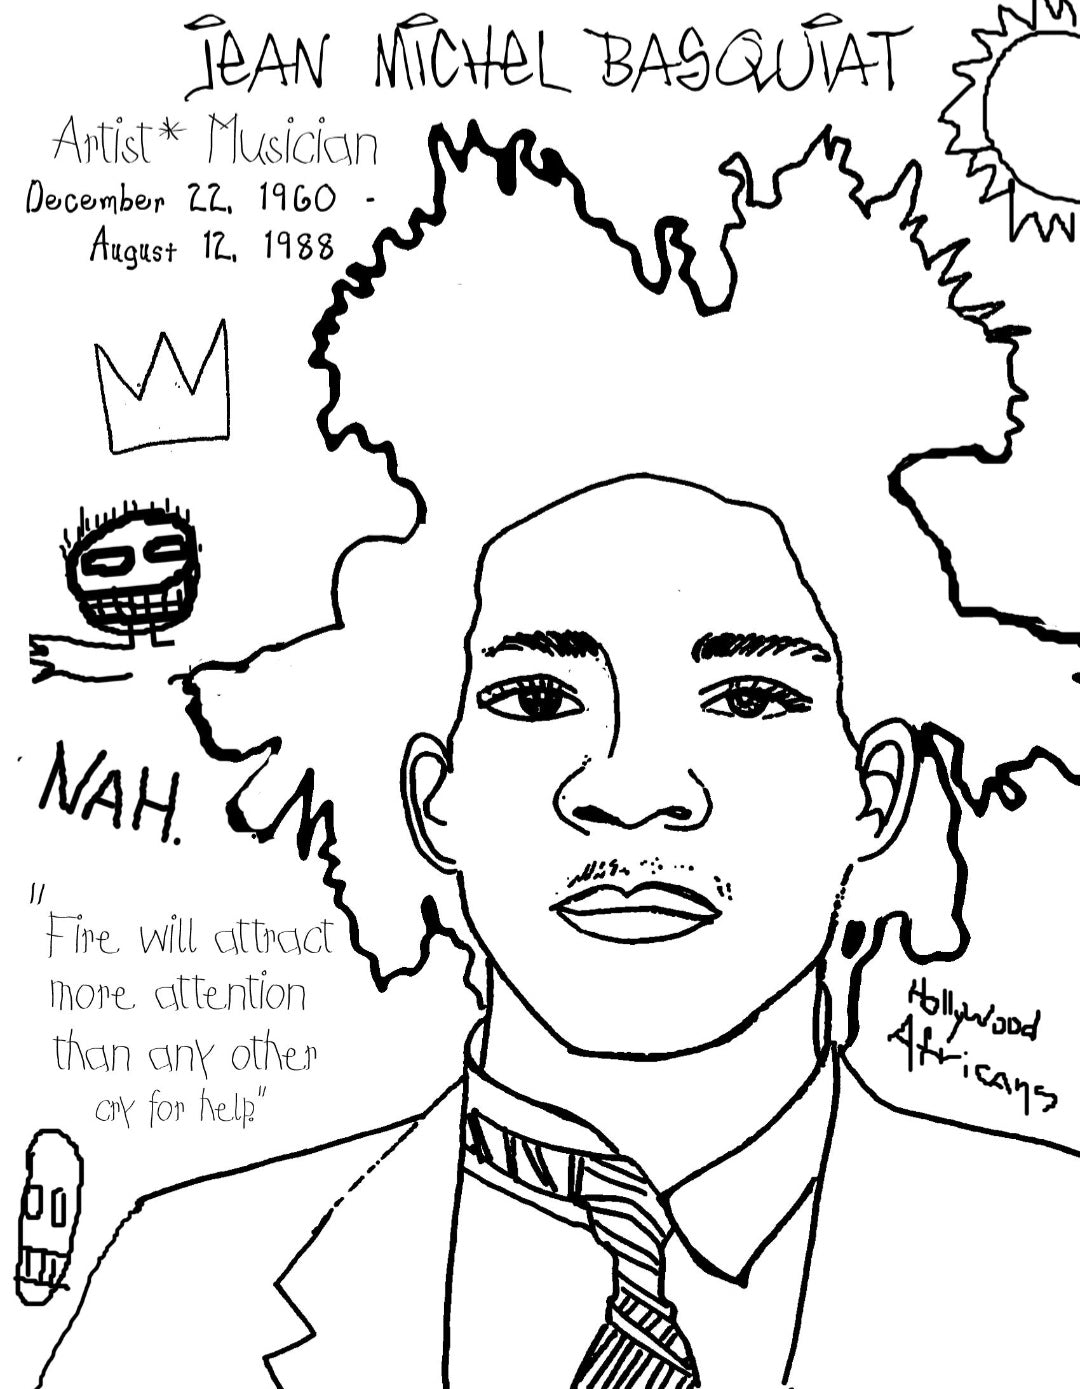 JEAN MICHEL BASQUIAT
Artist* Musician
December 22, 1960 -
August 12, 1988
NAH.
"Fire will attract
more attention
than any other
cry for help."
Hollywood
Africans